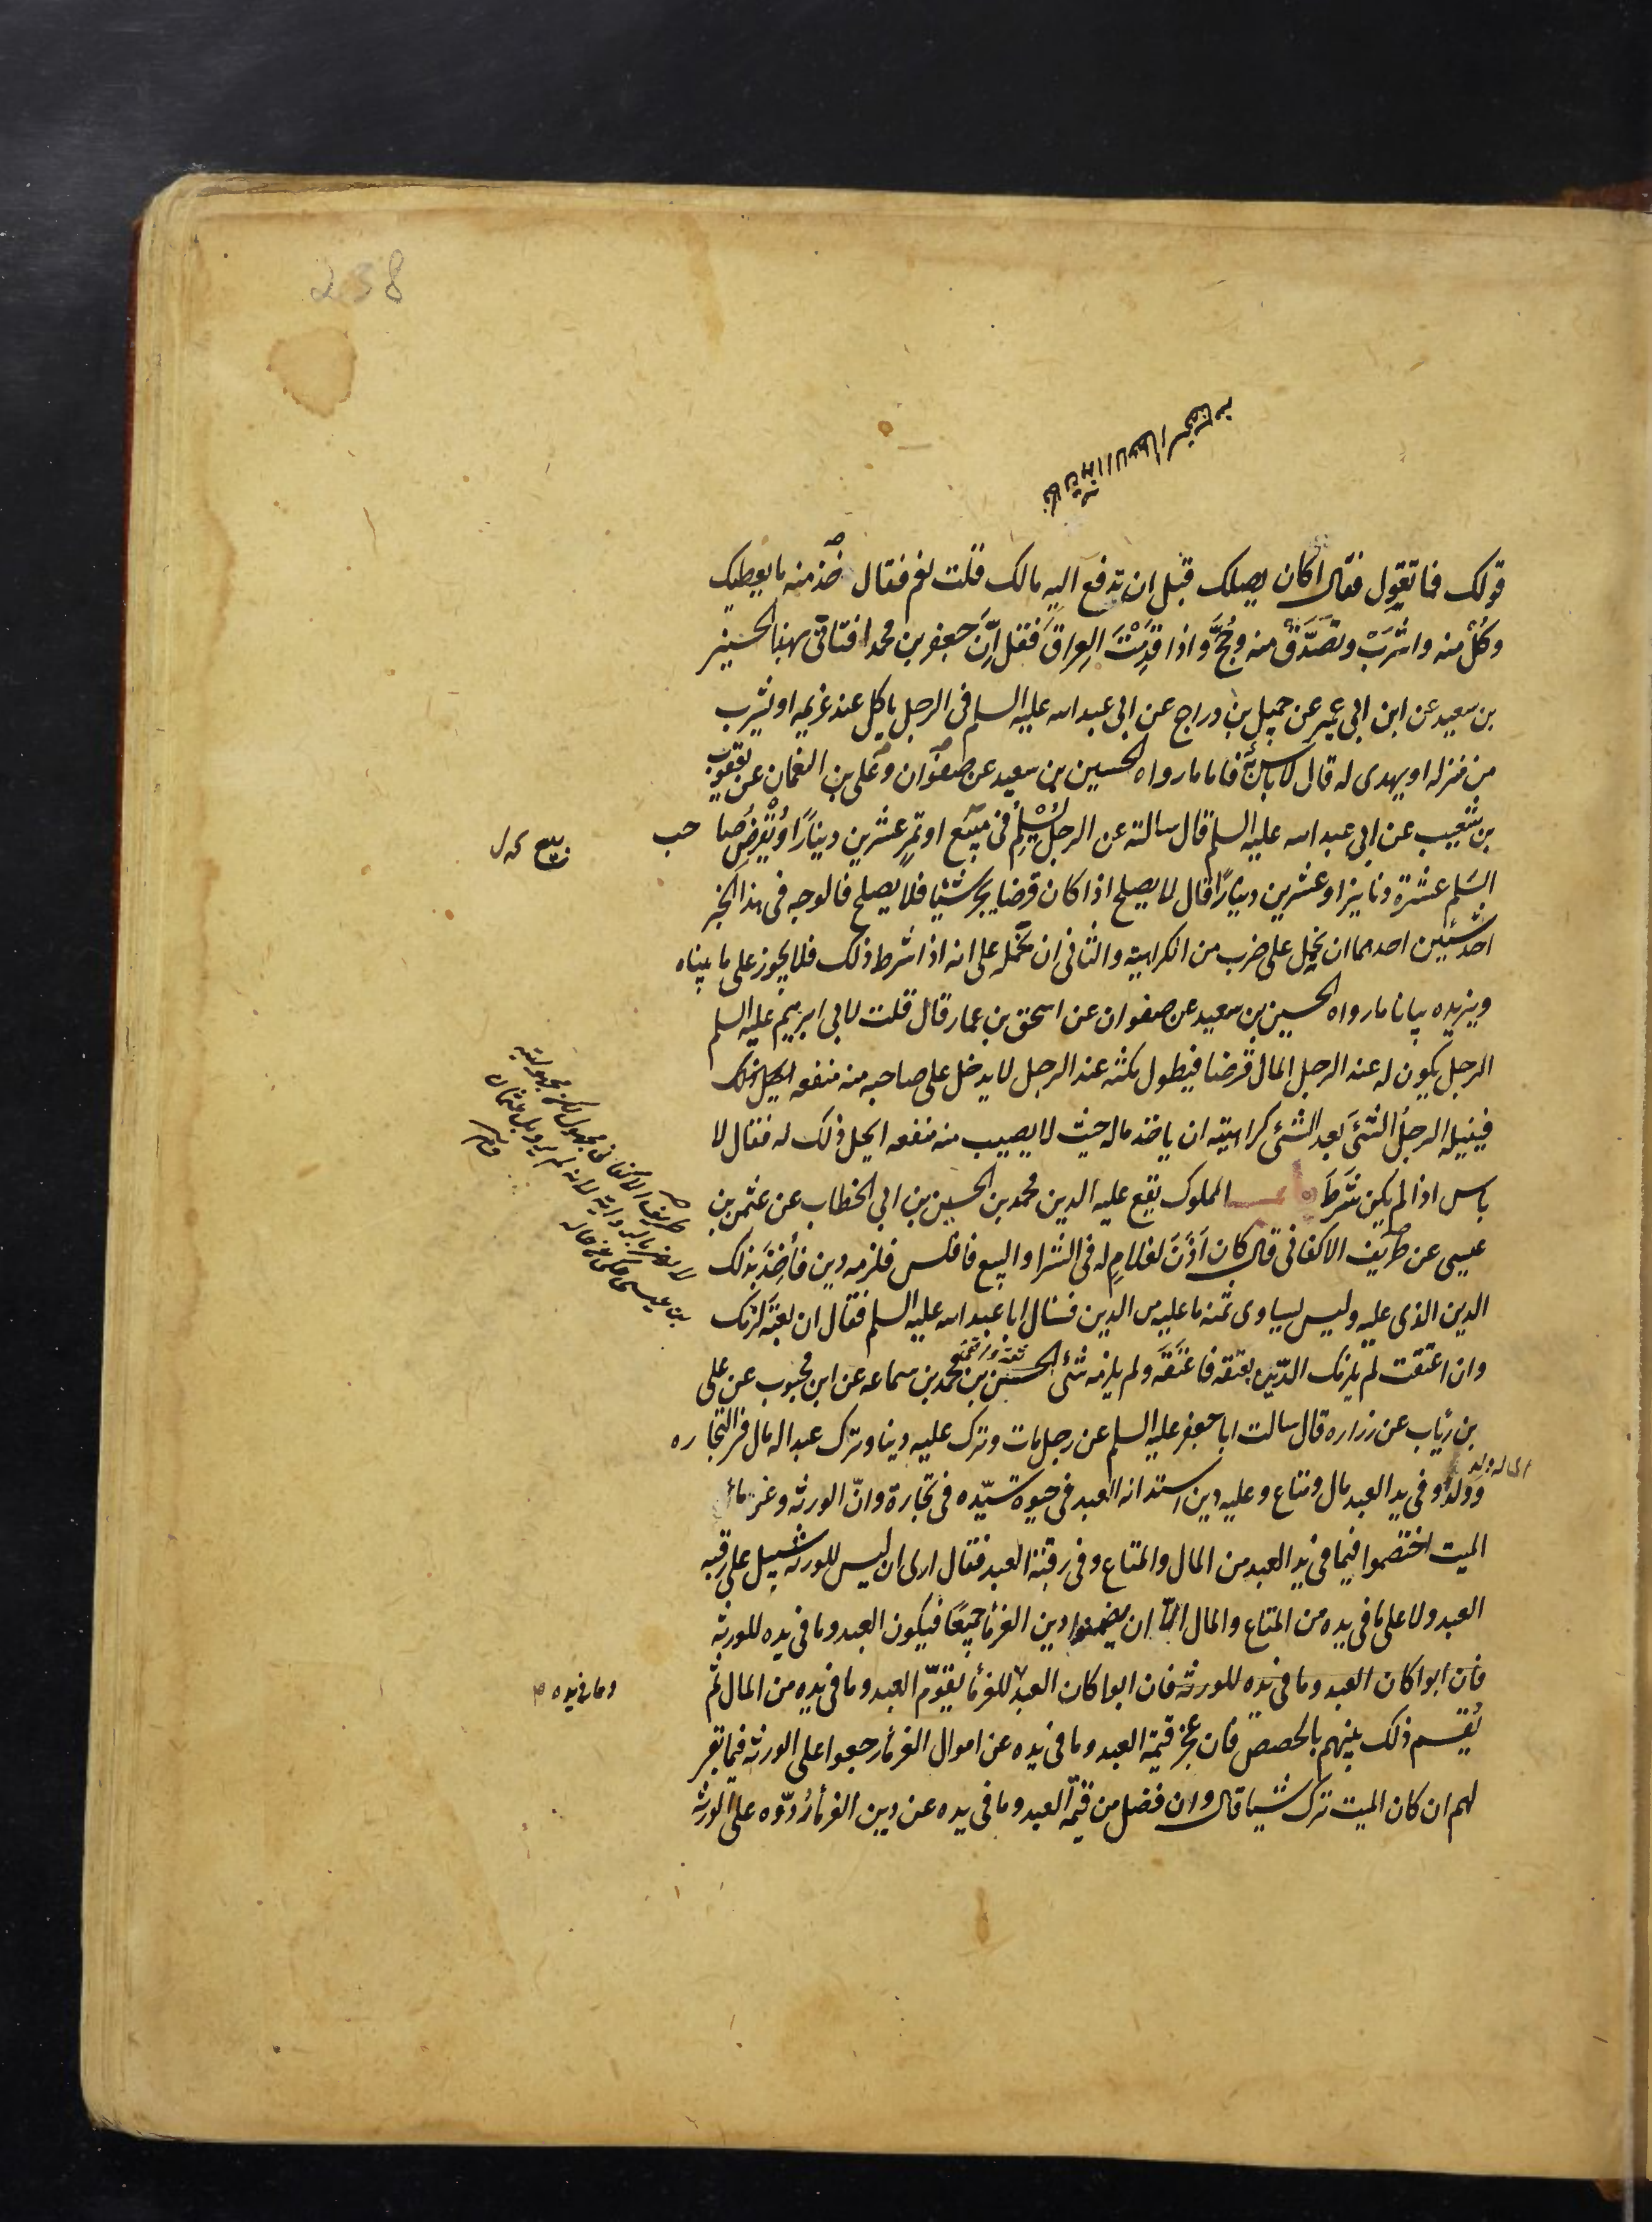 238
قولك فما تقول فقال اكان يصلك قبل ان تدفع اليه مالك قلت نعم فقال خذ منه ما يعطيك
وكُل منه واشرَبْ وتصَدَّقْ منه وحُجَّ واذا قدِمْتَ العِراقَ فقل اِنَّ جعفر بن محمد افتانى بهذا الحسين
بن سعيد عن ابن ابى عمير عن جميل بن دراج عن ابى عبد الله عليه السلم فى الرجل ياكل عند غريمه او يشرب
من منزله او يهدى له قال لا باس به فاما ما رواه الحسين بن سعيد عن صفوان وعلى بن النعمان عن يعقوب
بن شعيب عن ابى عبد الله عليه السلم قال سالته عن الرجل يُسْلِمُ فى بيع او تمرٍ عشرين دينارًا ويُقْرِضُ صا حب
السَلم عشرة دنانيرا وعشرين دينارًا قال لا يصلح اذا كان قرضا يجر شيئا فلا يصلح فالوجه فى هذا الخبر
احد شيئين احدهما ان يحمل على ضرب من الكراهية والثانى ان نحمله على انه اذا شرط ذلك فلا يجوز على ما بيناه
ويزيده بيانا ما رواه الحسين بن سعيد عن صفوان عن اسحق بن عمار قال قلت لابى ابرهيم عليه السلم
الرجل يكون له عند الرجل المال قرضا فيطول مكثه عند الرجل لا يدخل على صاحبه منه منفعه ايحل ذلك
فينيله الرجلُ الشئَ بعد الشئ كراهيته ان ياخذ ماله حيث لا يصيب منه منفعه ايحل ذلك له فقال لا
باس اذا لم يكن شَرَطَ باب المملوك يقع عليه الدين محمد بن الحسين بن ابى الخطاب عن عثمن بن
عيسى عن ظريف الاكفانى قال كان اَذَنَ لغلامٍ له فى الشرا والبيع فافلس فلزمه دين فأُخِذَ بذلك
الدين الذى عليه وليس يساوى ثمنه ما عليه من الدين فسال ابا عبد الله عليه السلم فقال ان بعتَه لزمك
وان اعتقت لم يلزمك الدّين بعتقه فاعتَقَه ولم يلزمه شئ الحسن بن محمد بن سماعه عن ابن محبوب عن على
بن رئاب عن زراره قال سالت ابا جعفر عليه السلم عن رجل مات وترك عليه دينا وترك عبدا له مال فى التجاره
وولدا وفى يد العبد مال ومتاع وعليه دين استدانه العبد فى حيوة سيّده فى تجارة وانّ الورثه وغرمائ
الميت اختصموا فيما فى يد العبد من المال والمتاع وفى رقبة العبد فقال ارى ان ليس للورثه سبيل على رقبه
العبد ولا على ما فى يده من المتاع والمال الّا ان يضمنوا دين الغرمأ جميعًا فيكون العبد وما فى يده للورثه
فان ابوا كان العبد وما فى يده للورثه فان ابوا كان العبد للغرمأ يقوّم العبد وما فى يده من المال ثم
وما فى يده
يُقسم ذلك بينهم بالحصص فان عجز قيمة العبد وما فى يده عن اموال الغرمأ رجعوا على الورثه فيما بقى
لهم ان كان الميت ترك شيئا قال وان فضل من قيمة العبد وما فى يده عن دين الغرمأ رُدّوه على الورثه